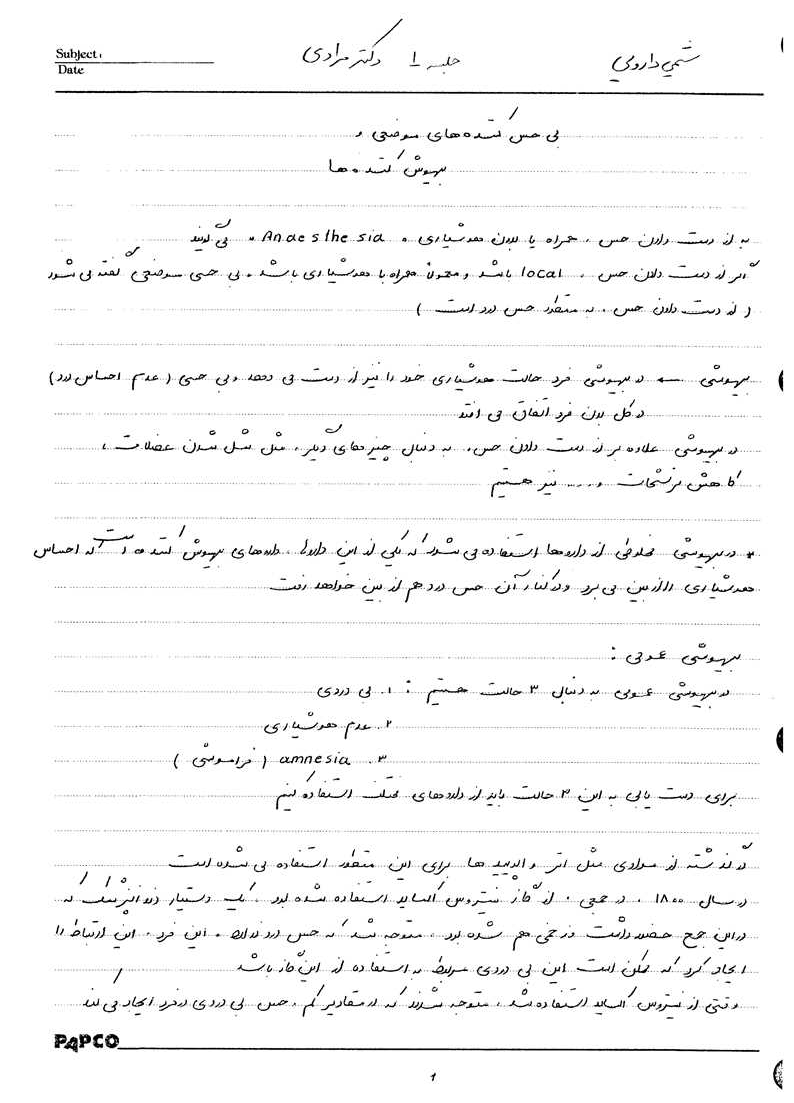 Subject:
Date
شیمی دارویی
جلسه 1 دکتر مرادی
بی حس کننده های موضعی و
بیهوش کننده ها
به از دست دادن حس، همراه یا بدون هوشیاری، Anaesthesia، می گویند
اگر از دست دادن حس، local باشد و معمولاً همراه با هوشیاری باشد، بی حسی موضعی گفته می شود
( از دست دادن حس، به منظور حس درد است )
بیهوشی ← در بیهوشی فرد حالت هوشیاری خود را نیز از دست می دهد و بی حسی ( عدم احساس درد )
در کل بدن فرد اتفاق می افتد
در بیهوشی علاوه بر از دست دادن حس، به دنبال چیزهای دیگر، مثل شل شدن عضلات،
کاهش ترشحات و .... نیز هستیم
* در بیهوشی مخلوطی از داروها استفاده می شود که یکی از این داروها، داروهای بیهوش کننده است که احساس
هوشیاری را از بین می برد و در کنار آن حس درد هم از بین خواهد رفت
بیهوشی عمومی :
در بیهوشی عمومی به دنبال ۳ حالت هستیم : ۱. بی دردی
۲. عدم هوشیاری
۳. amnesia ( فراموشی )
برای دست یابی به این ۳ حالت باید از داروهای مختلف استفاده کنیم
در گذشته از موادی مثل اتر و اپیوئید ها برای این منظور استفاده می شده است
در سال ۱۸۰۰، در جمعی، از گاز نیتروس اکساید استفاده شده بود، یک دستیار دندانپزشک که
در این جمع حضور داشت و زخمی هم شده بود، متوجه شد که حس درد ندارد، این فرد، این ارتباط را
ایجاد کرد که ممکن است این بی دردی مربوط به استفاده از این گاز باشد
وقتی از نیتروس اکساید استفاده شد، متوجه شدند که در مقادیر کم، حس بی دردی در فرد ایجاد می کند
PAPCO
1